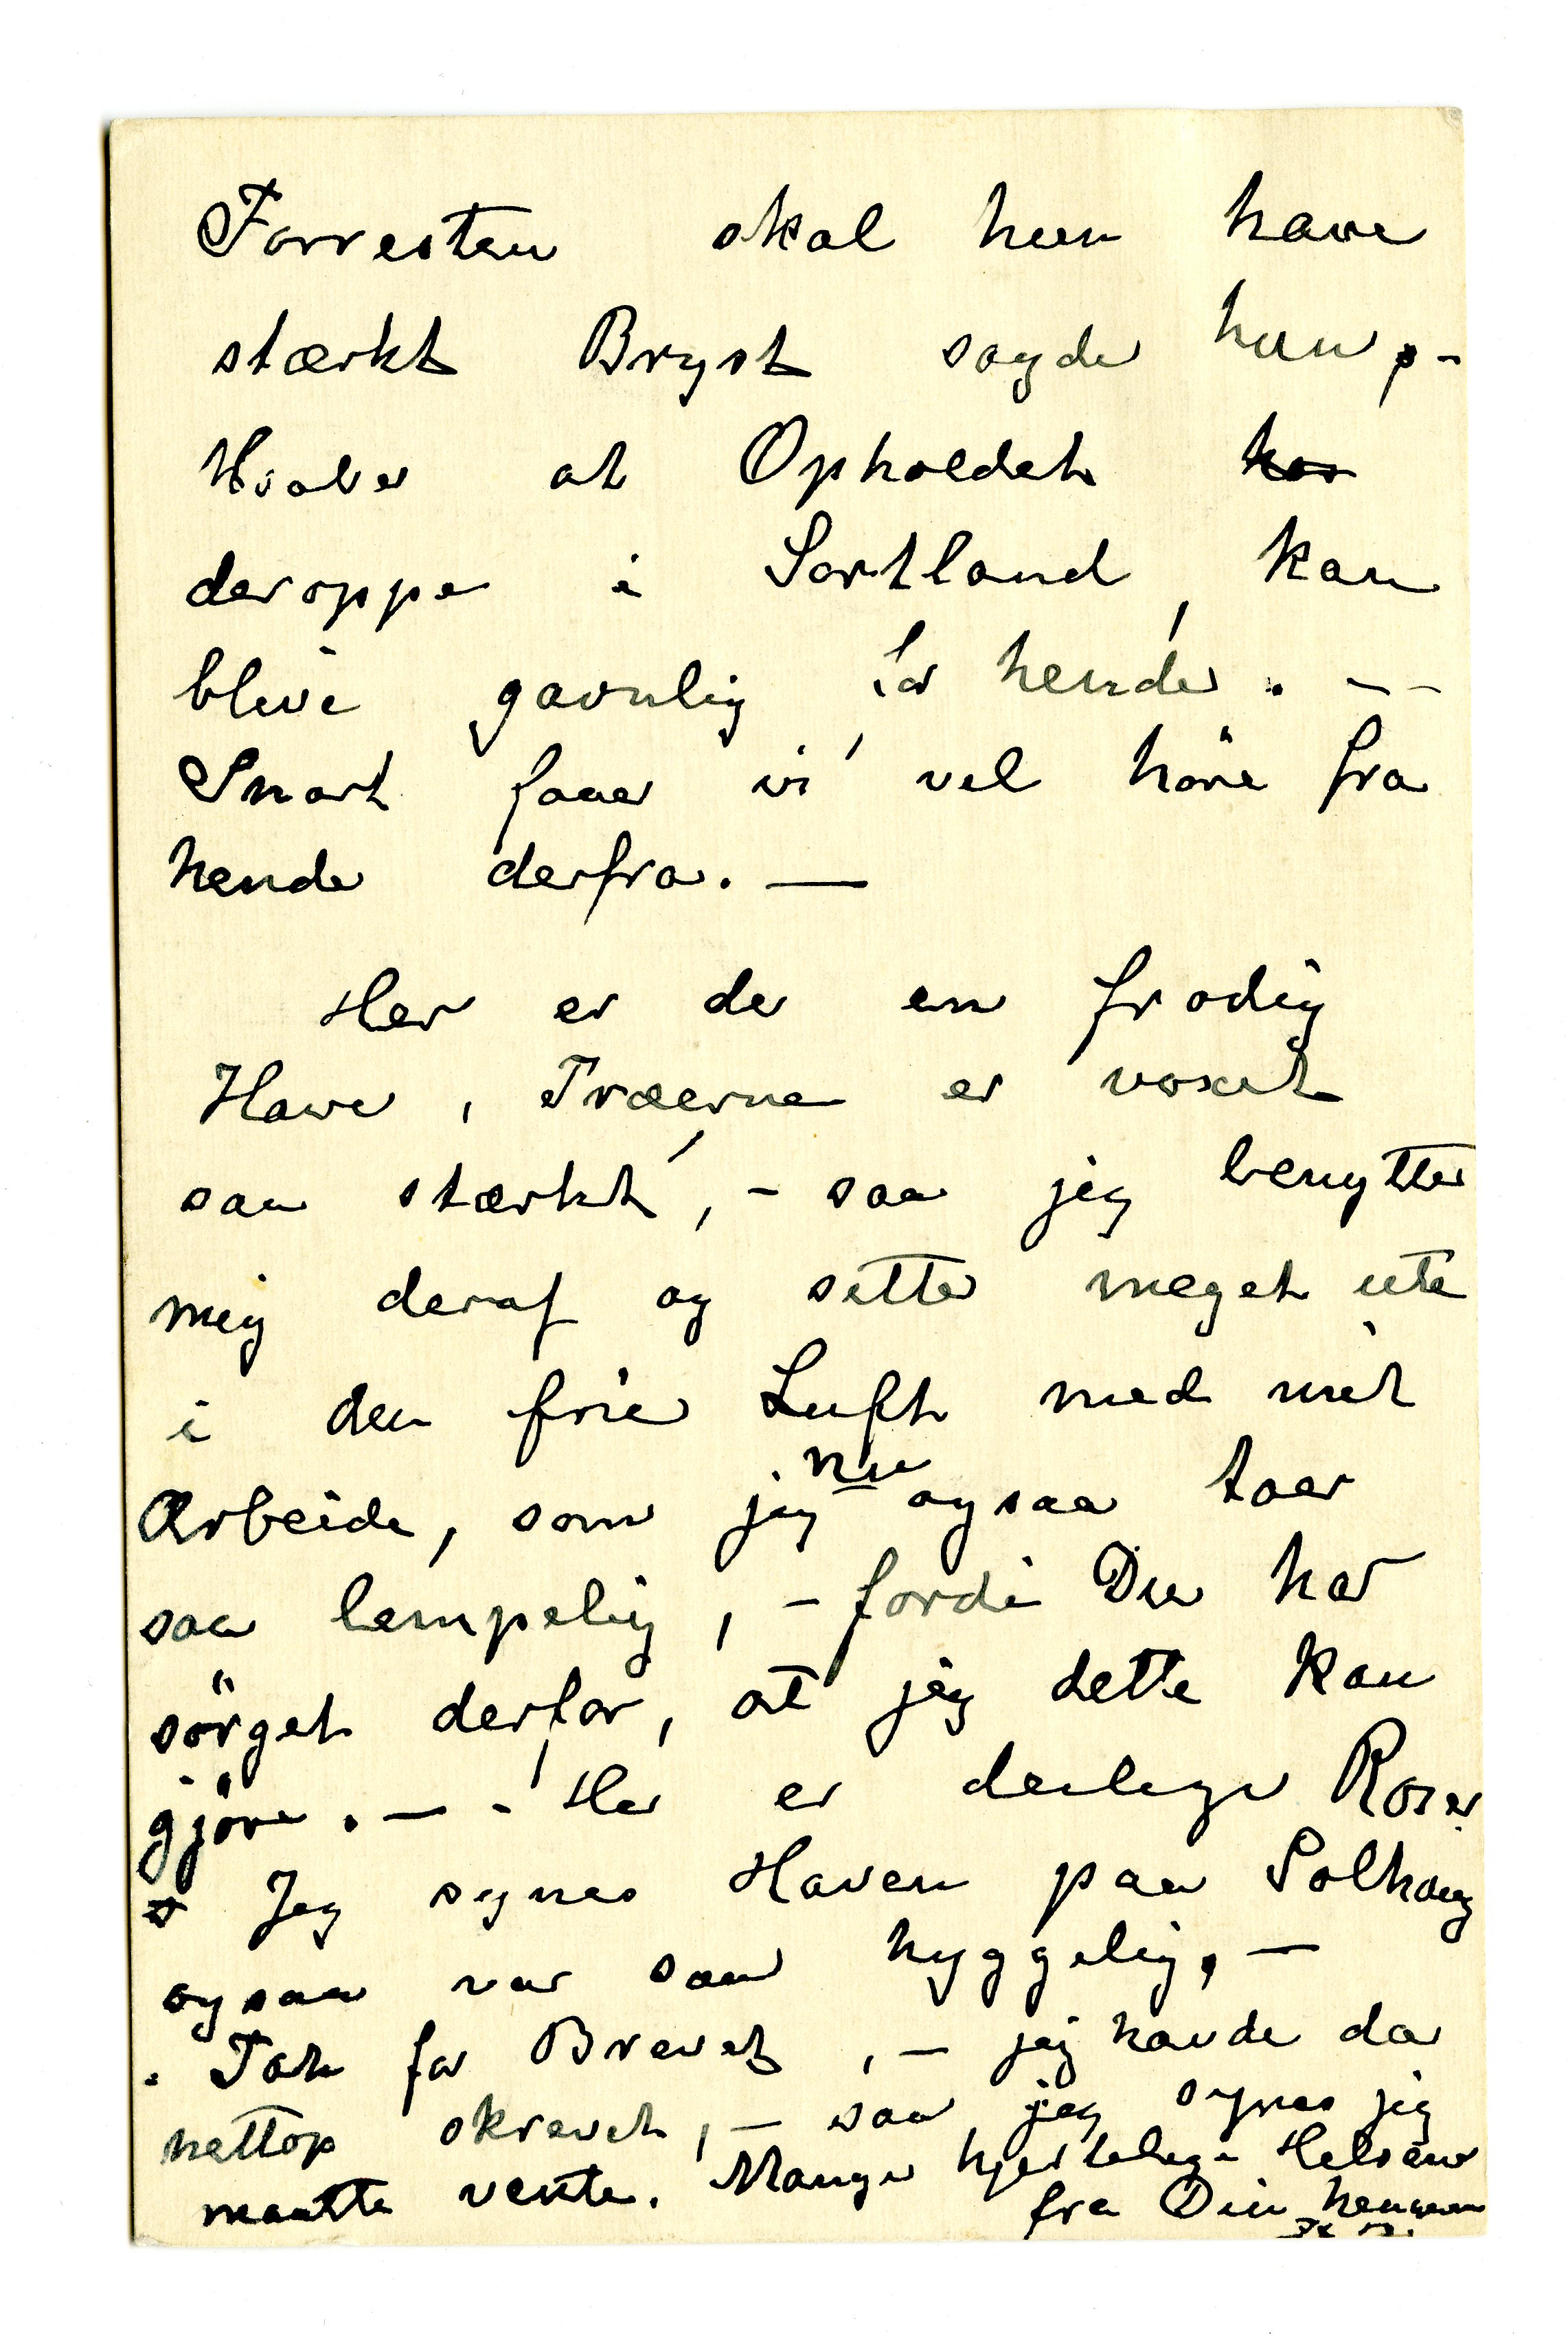 Forresten skal hun have
stærkt Bryst sagde hun, -
Haaber at Opholdet hos
deroppe i Sortland, kan
blive gavnlig for hende. - -
Snart faaer vi vel höre fra
hende derfra. —
Her er der en frodig
Have, Træerne er voxet
saa stærkt, - saa jeg benytter
mig deraf og sitter meget ute
i den frie Luft med mit
Arbeide, som jeg nu ogsaa taer
saa lempelig, - fordi Du har
sörget derfor, at jeg dette kan
gjöre. — - Her er deilige Roser
Jeg synes Haven paa Solhaug
ogsaa var saa hyggelig, —
. Tak for Brevet, — jeg havde da
nettop skrevet, — saa jeg synes jeg
maatte vente. Mange hjertelige Helsener
fra Din hengivne